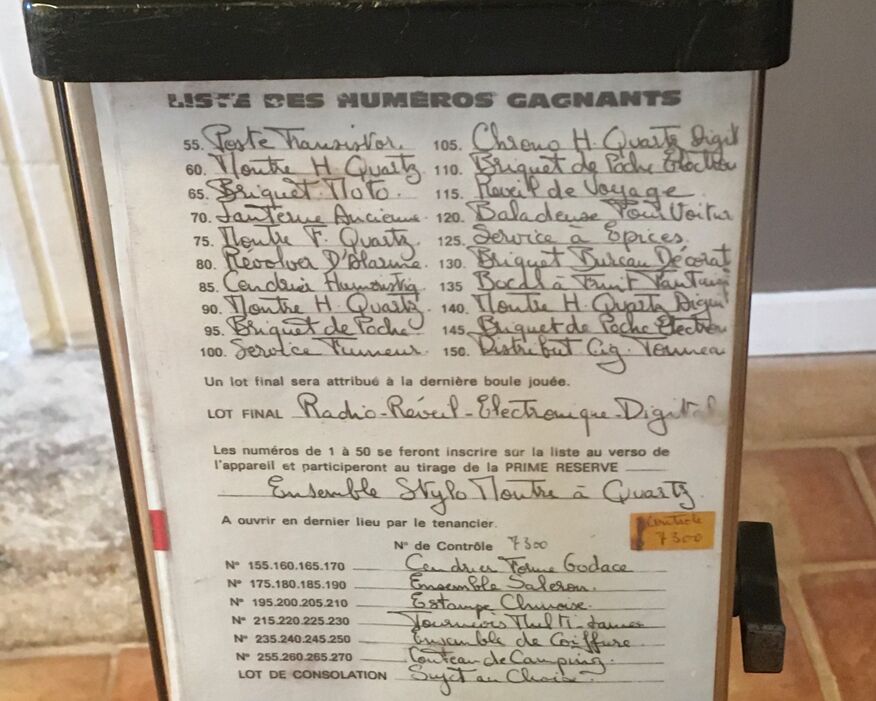 LISTE DES NUMÉROS GAGNANTS
55. Poste Transistor.
60. Montre H. Quartz
65. Briquet Moto.
70. Lanterne Ancienne.
75. Montre F. Quartz.
80. Révolver D'Alarme.
85. Cendrier Humoristiq
90. Montre H. Quartz
95. Briquet de Poche
100. Service Fumeur.
105. Chrono H. Quartz Digit
110. Briquet de Poche Electron
115. Reveil de Voyage
120. Baladeuse Pour Voitur
125. Service à Epices.
130. Briquet Bureau Décorat
135 Bocal à Fruit
140. Montre H. Quartz Digit
145. Briquet de Poche Electron
150. Distribut Cig. Tonnea
Un lot final sera attribué à la dernière boule jouée.
LOT FINAL Radio-Réveil-Electronique-Digital
Les numéros de 1 à 50 se feront inscrire sur la liste au verso de
l'appareil et participeront au tirage de la PRIME RESERVE
Ensemble Stylo Montre à Quartz.
A ouvrir en dernier lieu par le tenancier.
Contrôle
7300
N° de Contrôle 7300
N° 155.160.165.170 Cendrier Forme Godace
N° 175.180.185.190 Ensemble Saleron.
N° 195.200.205.210 Estampe Chinoise.
N° 215.220.225.230 Tournevis Multi-Lames
N° 235.240.245.250 Ensemble de Coiffure
N° 255.260.265.270 Couteau de Camping.
LOT DE CONSOLATION Sujet au Choix.